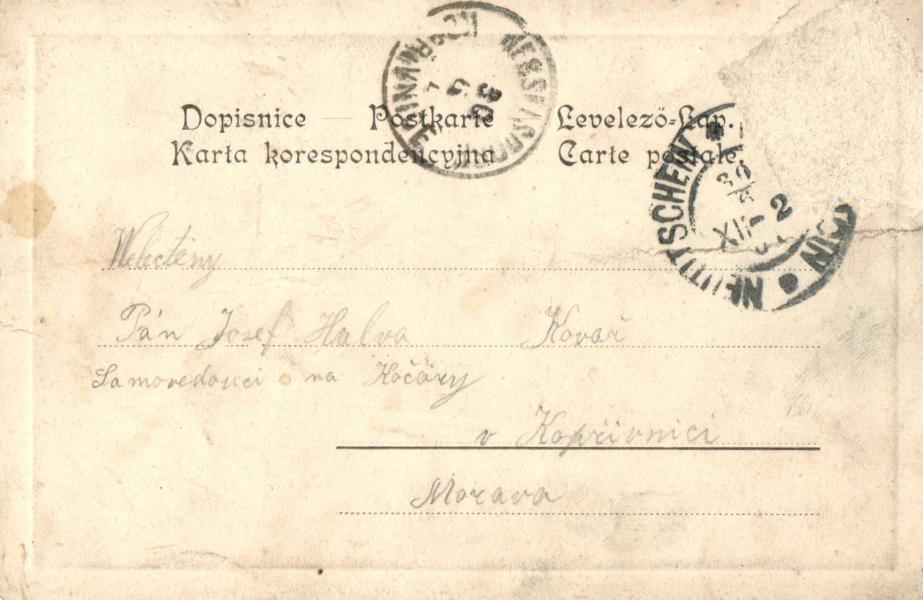 Dopisnice — Postkarte Levelező-Lap.
Karta korespondencyjna Carte postale.
NESSELSDORF KOPŘIVNICE
NEUTITSCHEIN
XII 2
Pán Josef Halva Kovař
na Kočáry
v Kopřivnici
Morava